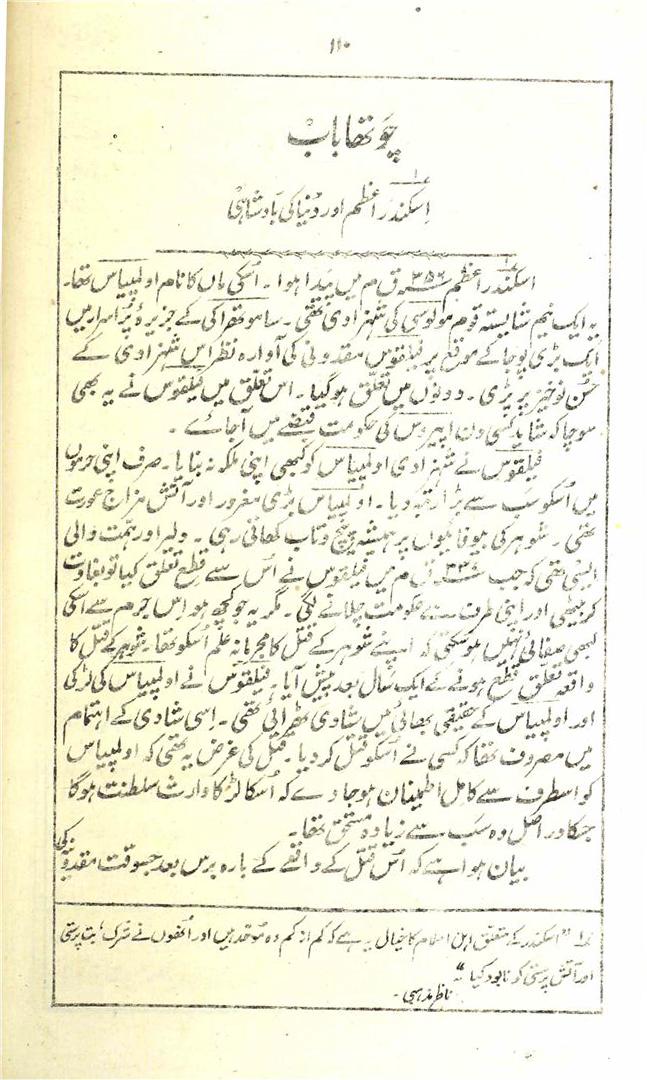 ۱۱۰
چوتھا باب
اسکندر اعظم اور دنیا کی بادشاہی
اسکندر اعظم ۳۵۶ ق م میں پیدا ہوا۔ اُسکی ماں کا نام اولمپیاس تھا۔
یہ ایک نیم شایستہ قوم مولوسی کی شہزادی تھی۔ ساموتھراکی کے جزیرۂ پُراسرار میں
ایک بڑی پوجا کے موقع پر فیلقوس مقدونی کی آوارہ نظر اس شہزادی کے
حُسنِ نوخیز پر پڑی۔ دونوں میں تعلق ہوگیا۔ اس تعلق میں فیلقوس نے یہ بھی
سوچا کہ شاید کسی دن ایپیروس کی حکومت قبضے میں آجائے۔
فیلقوس نے شہزادی اولمپیاس کو کبھی اپنی ملکہ نہ بنایا۔ صرف اپنی حرموں
میں اُسکو سب سے بڑا رتبہ دیا۔ اولمپیاس بڑی مغرور اور آتش مزاج عورت
تھی۔ شوہر کی بیوفائیوں پر ہمیشہ پیچ و تاب کھاتی رہی۔ دلیر اور ہمّت والی
ایسی تھی کہ جب ق م میں فیلقوس نے اُس سے قطع تعلق کیا تو بغاوت
کر بیٹھی اور اپنی طرف سے حکومت چلانے لگی۔ مگر یہ جو کچھ ہو اس جرم سے اسکی
کبھی صفائی نہیں ہوسکتی کہ اپنے شوہر کے قتل کا مجرمانہ علم اُسکو تھا۔ شوہر کے قتل کا
واقعہ تعلّق قطع ہونے کے ایک سال بعد پیش آیا۔ فیلقوس نے اولمپیاس کی لڑکی
اور اولمپیاس کے حقیقی بھائی میں شادی ٹھرائی تھی۔ اسی شادی کے اہتمام
میں مصروف تھا کہ کسی نے اُسکو قتل کر دیا۔ قتل کی غرض یہ تھی کہ اولمپیاس
کو اسطرف سے کامل اطمینان ہو جاوے کہ اُسکا لڑکا وارث سلطنت ہوگا
جسکا دراصل وہ سب سے زیادہ مستحق تھا۔
بیان ہوا ہے کہ اُس قتل کے واقعے کے بارہ برس بعد جسوقت مقدونیہ کی
۱؎ "اسکندر کے متعلق اہل اسلام کا خیال یہ ہے کہ کم از کم وہ موحد ہیں اور اُنھوں نے شرک، بت پرستی
اور آتش پرستی کو نابود کیا"
ناظر مذہبی۔